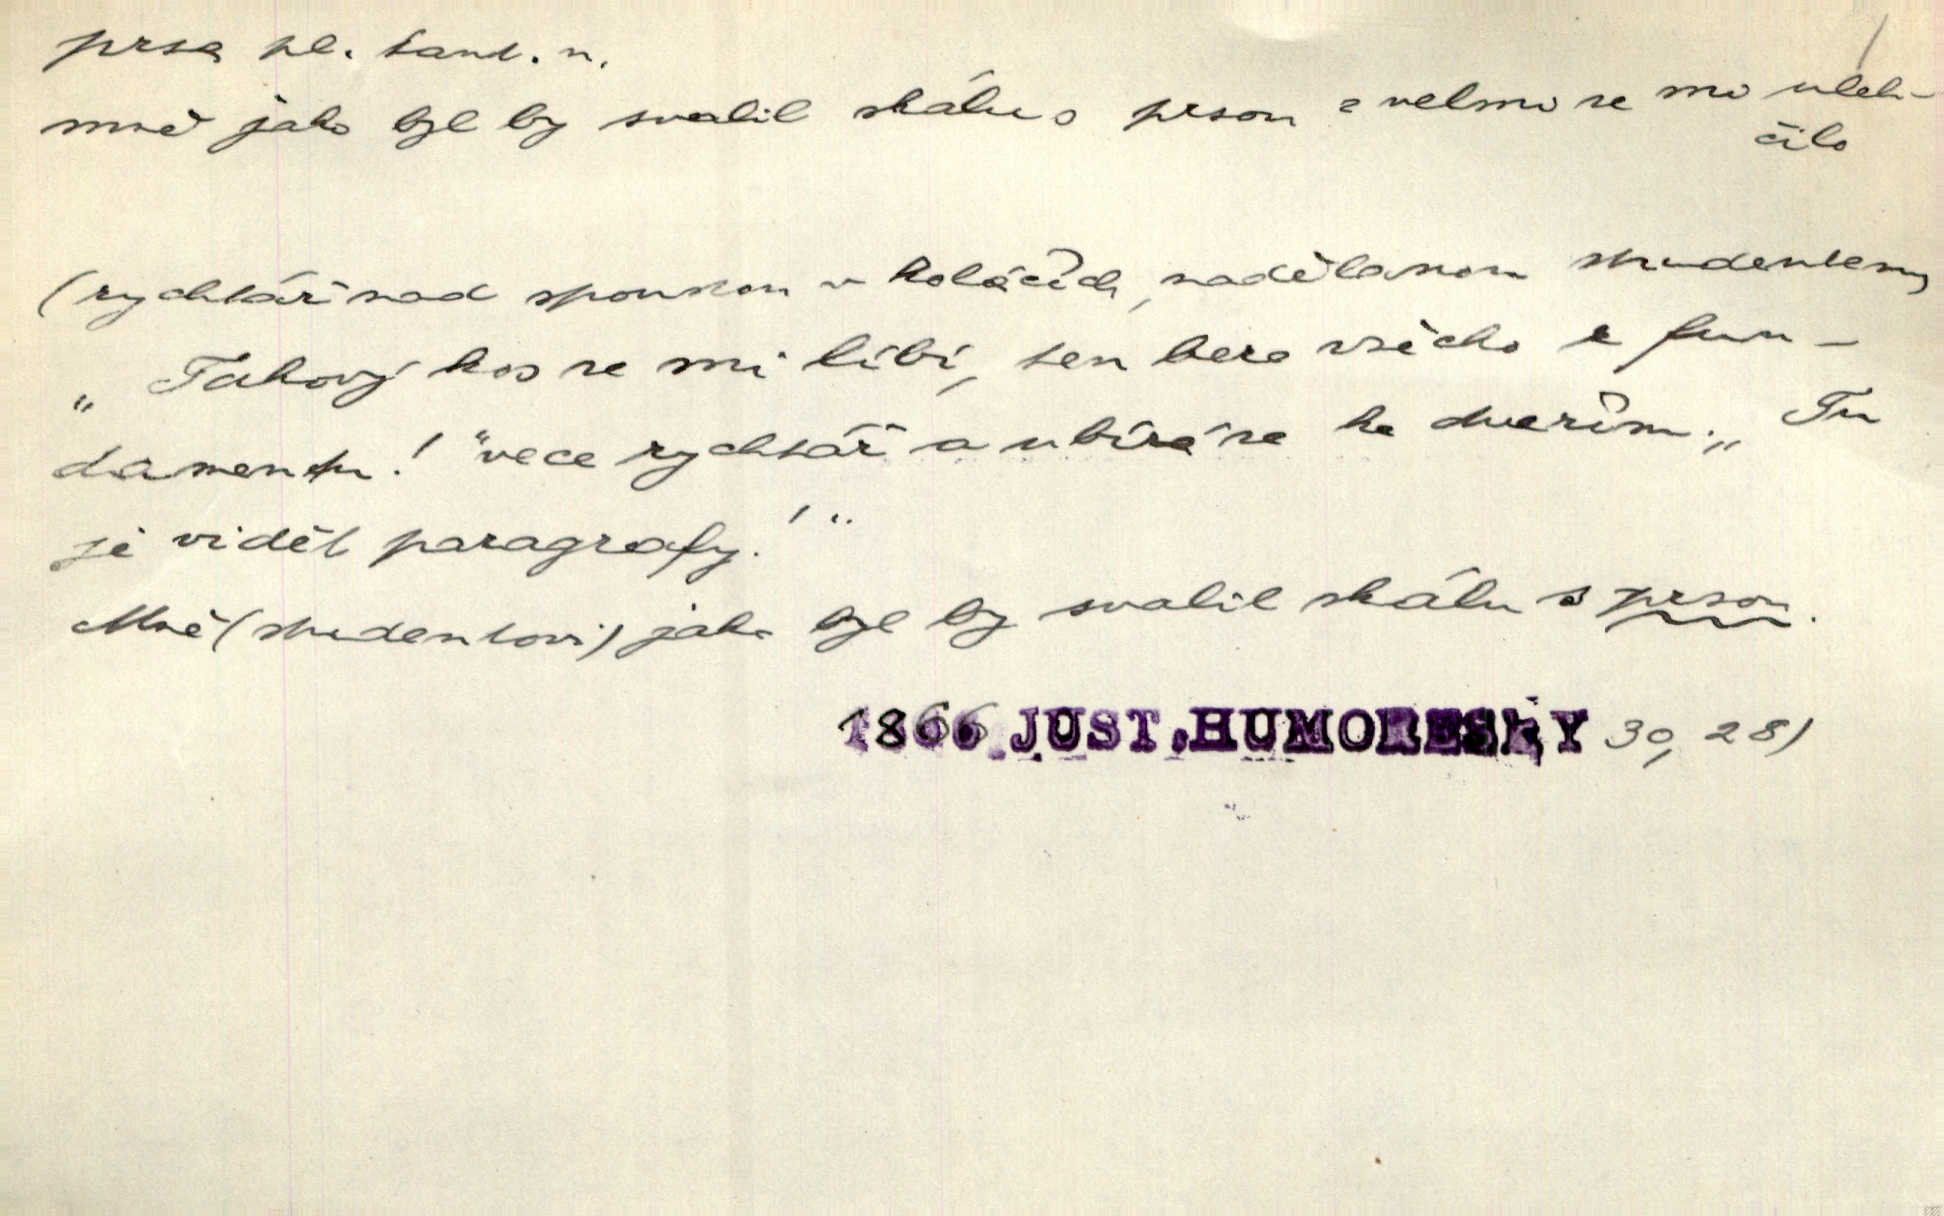 prsa pl. tant. n.
mně jako byl by svalil skálu s prsou a velmi se mi uleh-
čilo
(rychtář nad spoustou v koláčích, nadělanou studentem)
„Takový kos se mi líbí, ten bere všecko z fun-
damentu!" vece rychtář a ubírá se ke dveřím. „Tu
je vidět paragrafy!"
Mně (studentovi) jako byl by svalil skálu s prsou.
1866 JUST. HUMORESKY 30, 28)